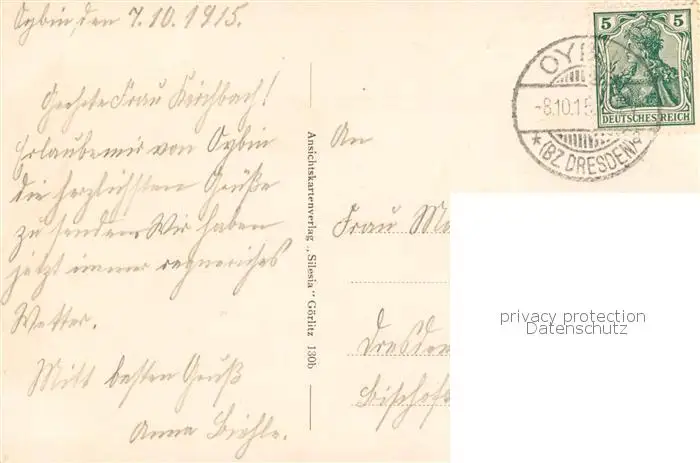 Oybin, den 7.10.1915.
Geehrte Frau Kirchbach!
Erlaube mir von Oybin
die herzlichsten Grüße
zu senden. Wir haben
jetzt immer regnerisches
Wetter.
Mitt besten Gruß
Anna
Ansichtskartenverlag „Silesia“ Görlitz 130b
An
Frau
Dresden
5 5
DEUTSCHES REICH
-8.10.15
* (BZ. DRESDEN)
privacy protection
Datenschutz